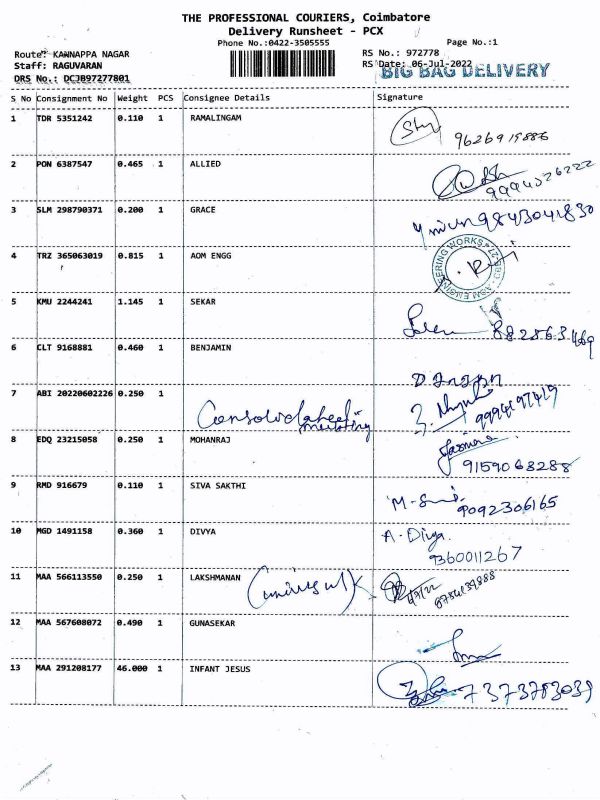 THE PROFESSIONAL COURIERS, Coimbatore
Delivery Runsheet - PCX
Phone No.:0422-3505555 Page No.:1
Route: KANNAPPA NAGAR RS No.: 972778
Staff: RAGUVARAN RS Date: 06-Jul-2022
BIG BAG DELIVERY
DRS No.: DCJB97277801
S No Consignment No Weight PCS Consignee Details Signature
1 TDR 5351242 0.110 1 RAMALINGAM
9626919886
2 PON 6387547 0.465 1 ALLIED
9994026222
3 SLM 298790371 0.200 1 GRACE
9843041830
4 TRZ 365063019 0.815 1 AOM ENGG
ENGINEERING WORKS
5 KMU 2244241 1.145 1 SEKAR
882863469
6 CLT 9168881 0.460 1 BENJAMIN
7 ABI 20220602226 0.250 1
9994197419
8 EDQ 23215058 0.250 1 MOHANRAJ
9159063288
9 RMD 916679 0.110 1 SIVA SAKTHI
9092306165
10 MGD 1491158 0.360 1 DIVYA
A. Divya
9360011267
11 MAA 566113550 0.250 1 LAKSHMANAN
12 MAA 567608072 0.490 1 GUNASEKAR
13 MAA 291208177 46.000 1 INFANT JESUS
7373783039